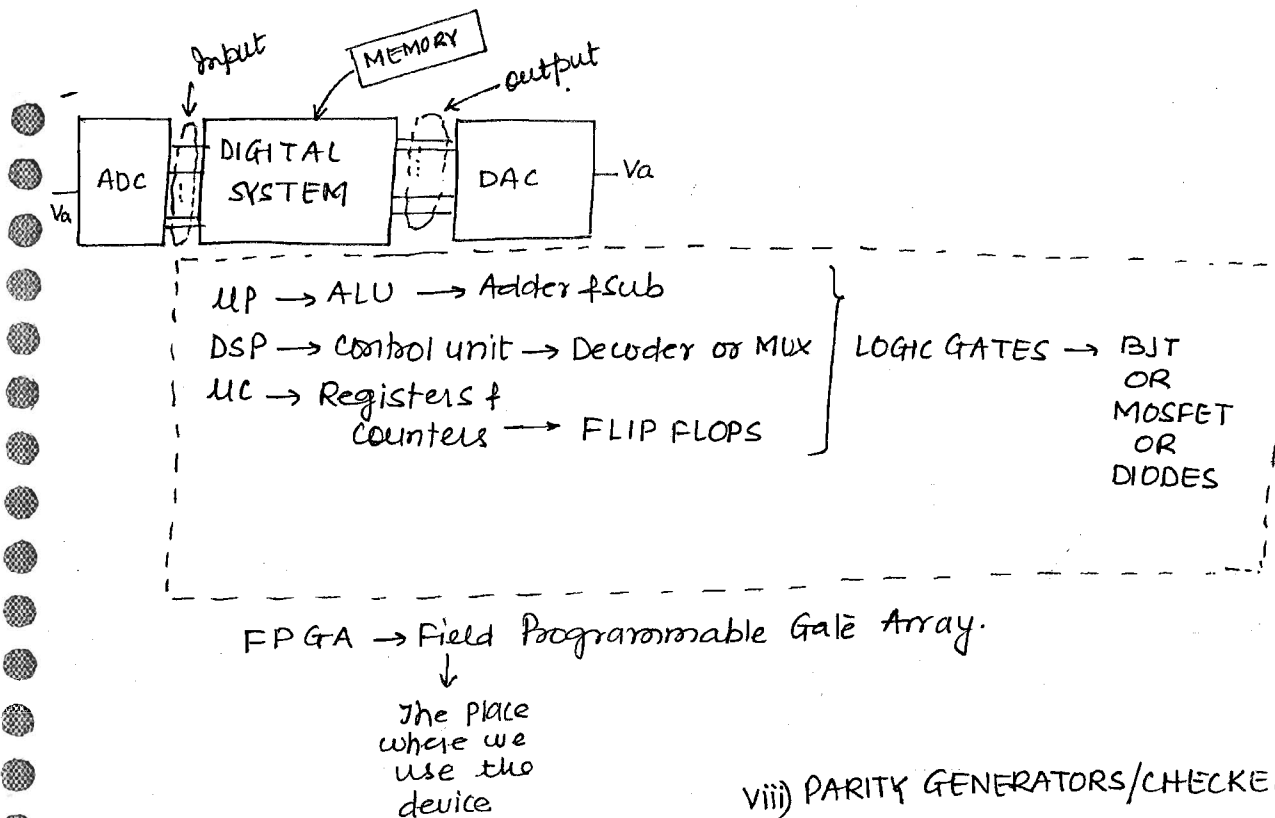 Input
MEMORY
output
ADC
DIGITAL
SYSTEM
DAC
Va
Va
μP → ALU → Adder & Sub
DSP → Control unit → Decoder or MUX
μC → Registers &
Counters → FLIP FLOPS
LOGIC GATES → BJT
OR
MOSFET
OR
DIODES
FPGA → Field Programmable Gate Array.
↓
The Place
where we
use the
device
viii) PARITY GENERATORS/CHECKE